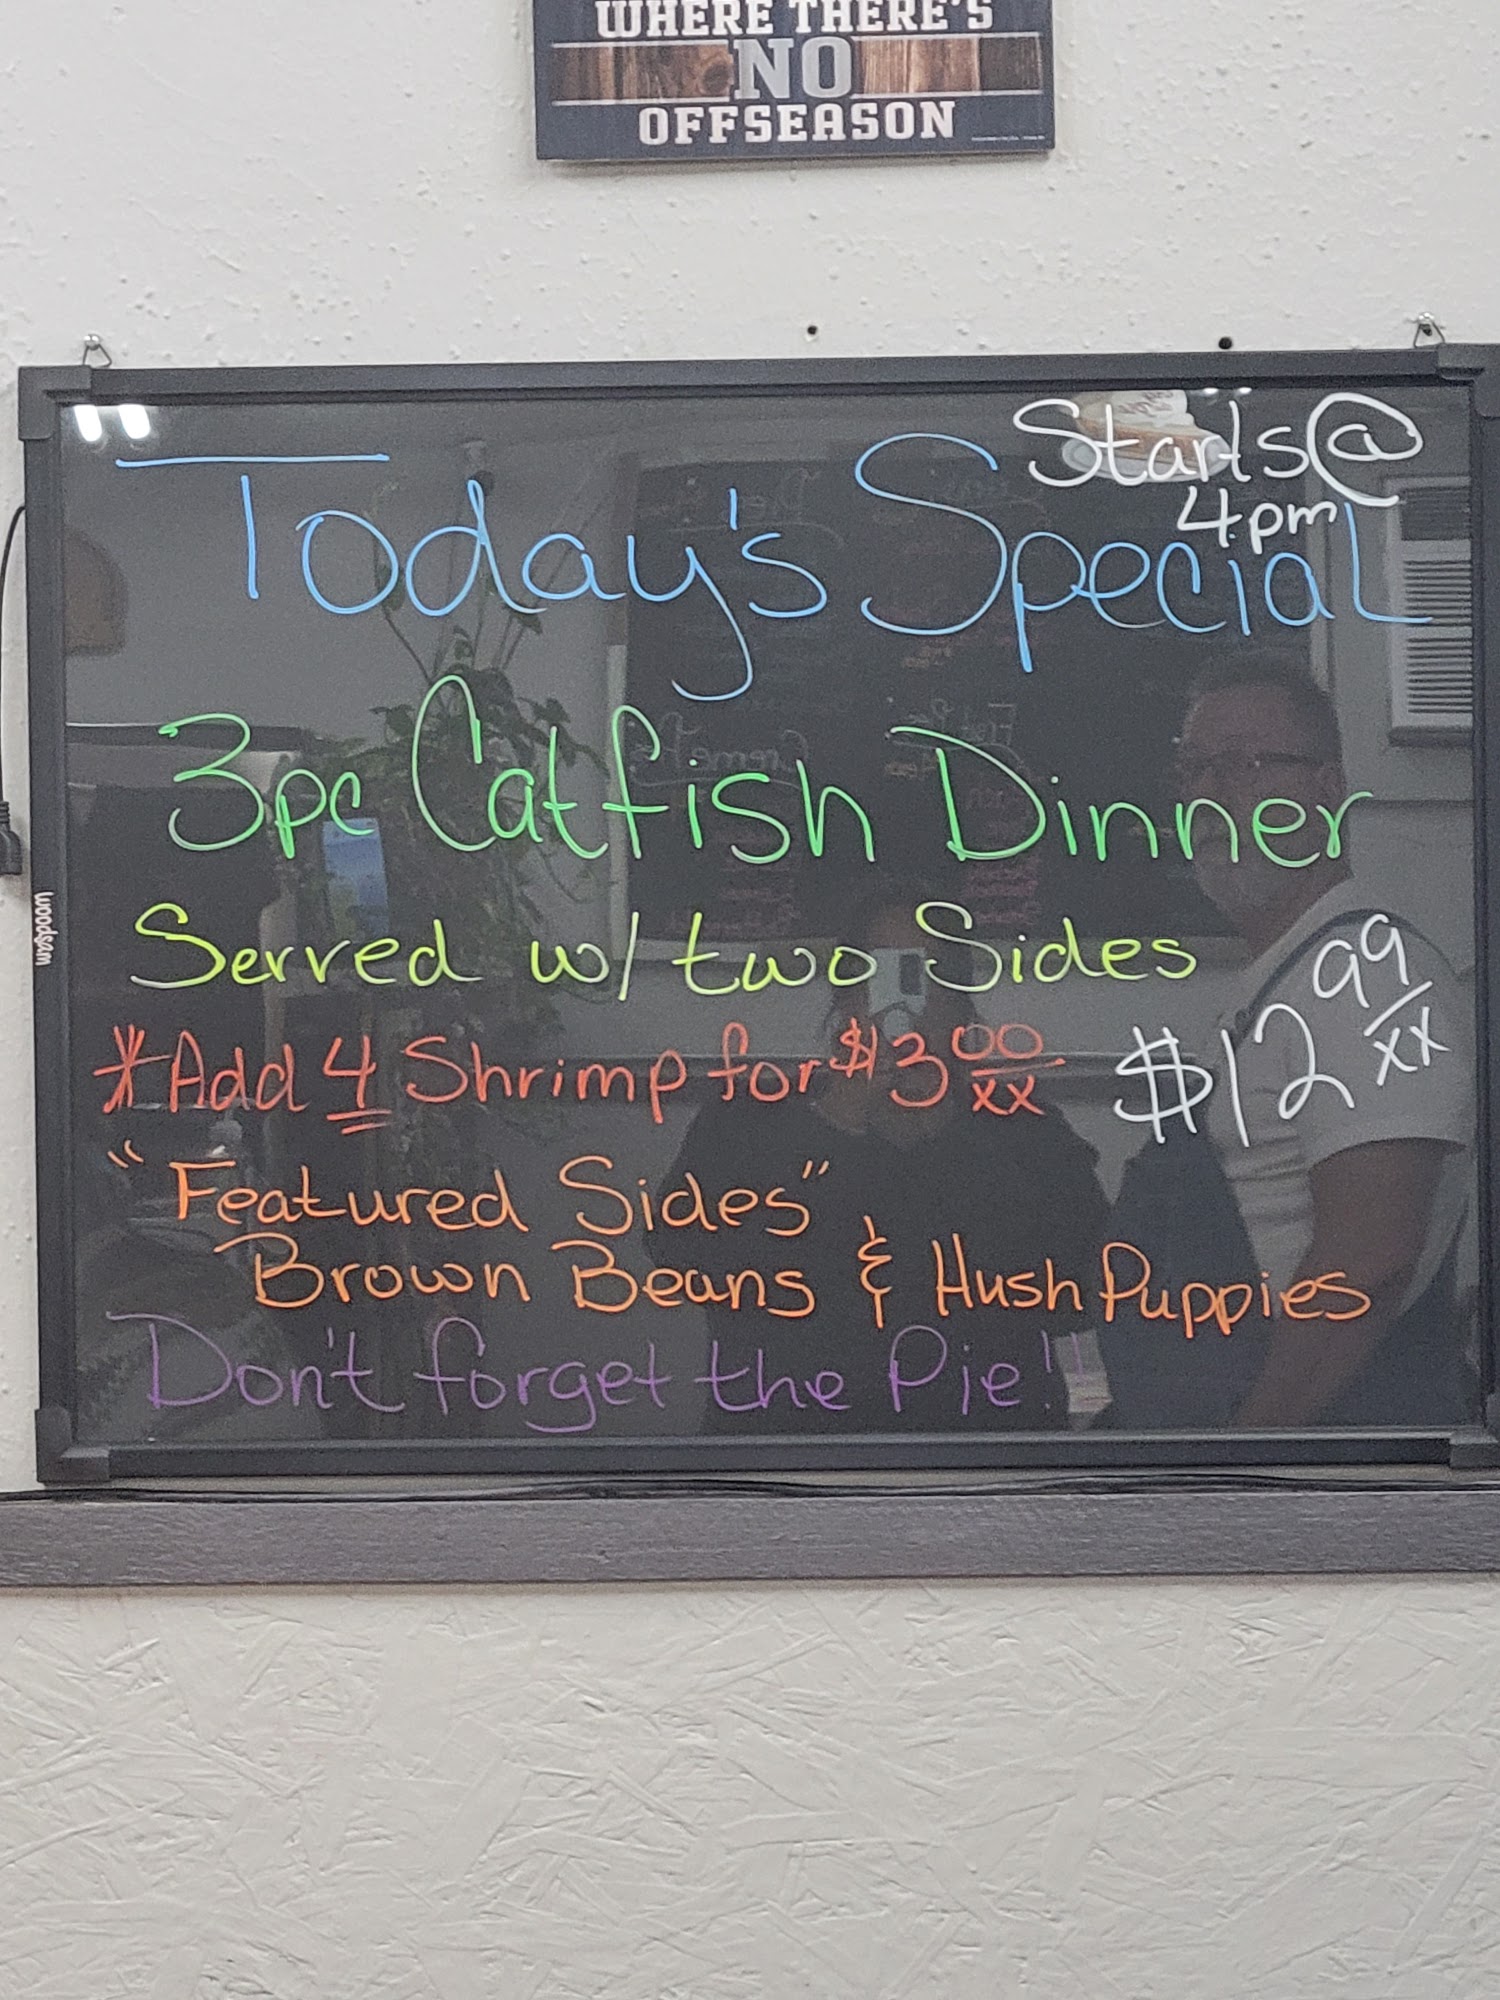 WHERE THERE'S
NO
OFFSEASON
Starts @
4pm
Today's Special
3pc Catfish Dinner
Served w/ two Sides
*Add 4 Shrimp for $3 00/xx
$12 99/xx
"Featured Sides"
Brown Beans & Hush Puppies
Don't forget the Pie!!
woodsam